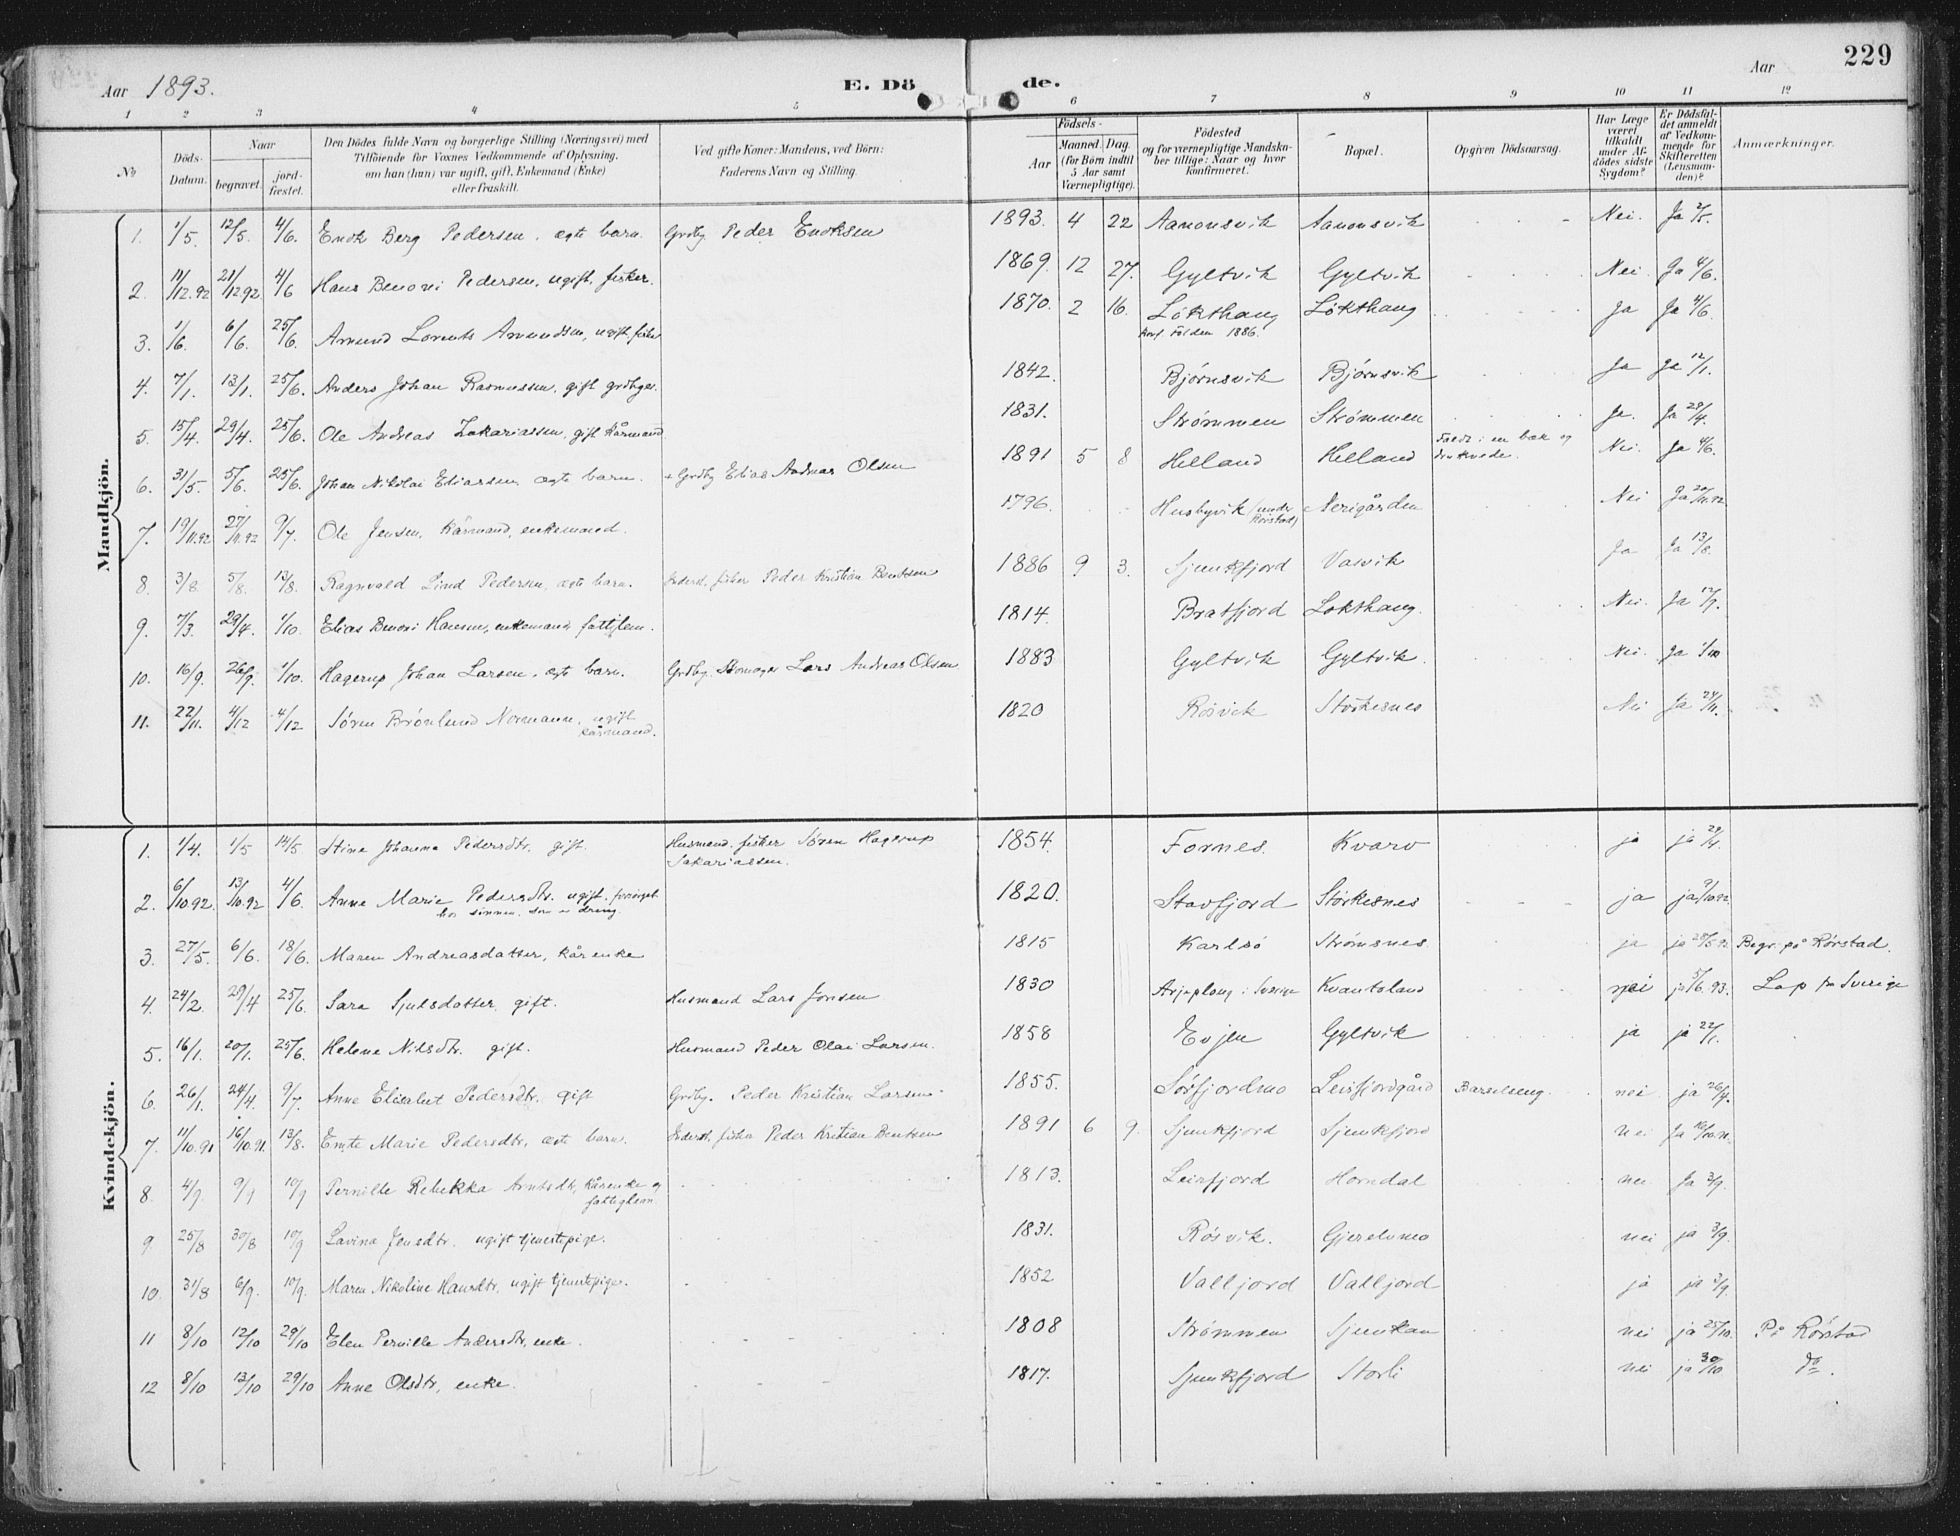 229
Aar 1893. E. Dö de. Aar
1 2 3 4 5 6 7 8 9 10 11 12
No
Döds-Datum.
Naar
begravet.
jord-fæstet.
Den Dödes fulde Navn og borgerlige Stilling (Næringsvei) med
Tilföiende for Voxnes Vedkommende af Oplysning,
om han (hun) var ugift, gift, Enkemand (Enke)
eller fraskilt.
Ved gifte Koner: Mandens, ved Börn:
Faderens Navn og Stilling.
Födsels-
Aar
Maaned. Dag.
(for Börn indtil
5 Aar samt
Værnepligtige).
Födested
og for værnepligtige Mandska-
ber tillige: Naar og hvor
konfirmeret.
Bopæl.
Opgiven Dödsaarsag.
Har Læge
været
tilkaldt
under Af-
dödes sidste
Sygdom?
Er Dödsfal-
det anmeldt
af Vedkom-
mende for
Skifteretten
(Lensman-
den)?
Anmærkninger.
Mandkjön.
1. 1/5. 12/5. 4/6. Enok Berg Pedersen, ægte barn. Grdbg. Peder Enoksen 1893. 4 22 Aanonsvik Aanonsvik Nei. Ja 2/5.
2. 11/12.92 21/12.92 4/6 Hans Benoni Pedersen, ugift, fisker. 1869. 12 27. Gyltvik Gyltvik Nei. Ja 4/6.
3. 1/6. 6/6. 25/6. Amund Lorents Amundsen, ugift fisker 1870. 2 16. Løkthaug Løkthaug Ja Ja 4/6.
Konf. Folden 1886.
4. 7/1. 13/1. 25/6. Anders Johan Rasmussen, gift grdbger. 1842. Bjørnsvik Bjørnsvik Ja Ja 12/1.
5. 15/4. 29/4. 25/6. Ole Andreas Zakariassen, gift kårmand 1831. Strømmen Strømmen Ja. Ja 28/4.
6. 31/5. 5/6. 25/6. Johan Nikolai Eliassen, ægte barn. Grdbg Elias Andreas Olsen 1891 5 8 Helland Helland Faldt i en bæk og
druknede. Nei. Ja 4/6.
7. 19/11.92 27/11.92 9/7. Ole Jensen, kårmand, enkemand. 1796. Husbyvik (under
Rørstad) Nerigården Nei Ja 20/11.92
8. 3/8. 5/8. 13/8. Ragnvald Lind Pedersen, ægte barn. Inderst, fisker Peder Kristian Bentsen 1886 9 3. Sjunkfjord Vasvik Ja Ja 13/8.
9. 7/3. 29/4. 1/10. Elias Benoni Hansen, enkemand, fattiglem. 1814. Bratfjord Løkthaug. Nei. Ja
10. 16/9. 26/9. 1/10. Hagerup Johan Larsen, ægte barn. Grdbg. Skomager Lars Andreas Olsen 1883 Gyltvik Gyltvik. Nei. Ja 1/10
11. 22/11. 4/12 4/12 Søren Brønlund Normann, ugift
kårmand. 1820 Røsvik Storkesnes Nei Ja 24/11.
Kvindekjön.
1. 1/4. 1/5 14/5. Stina Johanna Pedersdtr. gift. Husmand, fisker Søren Hagerup
Sakariassen. 1854. Fornes. Kvarv ja ja 29/4.
2. 6/10.92. 13/10.92 4/6. Anne Marie Pedersdtr. ugift, forsørget
hos sønnen, som er dreng. 1820. Stavfjord Storkesnes ja ja 9/10.92.
3. 27/5. 6/6. 18/6. Maren Andreasdatter, kårenke 1815 Karlsø Strømsnes. ja ja 28/5.93 Begr. på Rørstad.
4. 24/2. 29/4 25/6. Sara Sjulsdatter, gift. Husmand Lars Jonsen 1830 Arjeplong i Sverige Kvantoland nei ja 5/6.93. Lap fra Sverige
5. 16/1. 20/1. 25/6. Helene Nilsdtr. gift. Husmand Peder Olai Larsen. 1858 Evjen Gyltvik ja ja 22/1.
6. 26/1. 24/4. 9/7. Anne Elisabet Pedersdtr. gift Grdbg. Peder Kristian Larsen 1855. Sørfjordmo Leirfjordgård Barselseng. nei ja 26/4.
7. 11/10.91 16/10.91. 13/8. Emte Marie Pedersdtr, ægte barn. Inderst, fisker Peder Kristian Bentsen 1891 6 9. Sjunkfjord Sjunkfjord nei Ja 16/10.91.
8. 4/9. 9/9 10/9 Pernille Rebekka Arntsdtr, kårenke og
fattiglem 1813. Leirfjord Horndal nei Ja 3/9.
9. 25/8 30/8 10/9 Lavina Jensdtr. ugift tjenestepige. 1831. Røsvik. Gjerelvmo nei ja 3/9.
10. 31/8 6/9. 10/9. Maren Nikoline Hansdtr, ugift tjenestepige. 1852 Valljord Valljord ja ja 3/9.
11 8/10 12/10 29/10 Elen Pernille Andersdtr, enke. 1808 Strømmen Sjunkan nei ja 25/10. På Rørstad
12 8/10 13/10 29/10 Anne Olsdtr, enke. 1817. Sjunkfjord Storli nei ja 30/10 do.